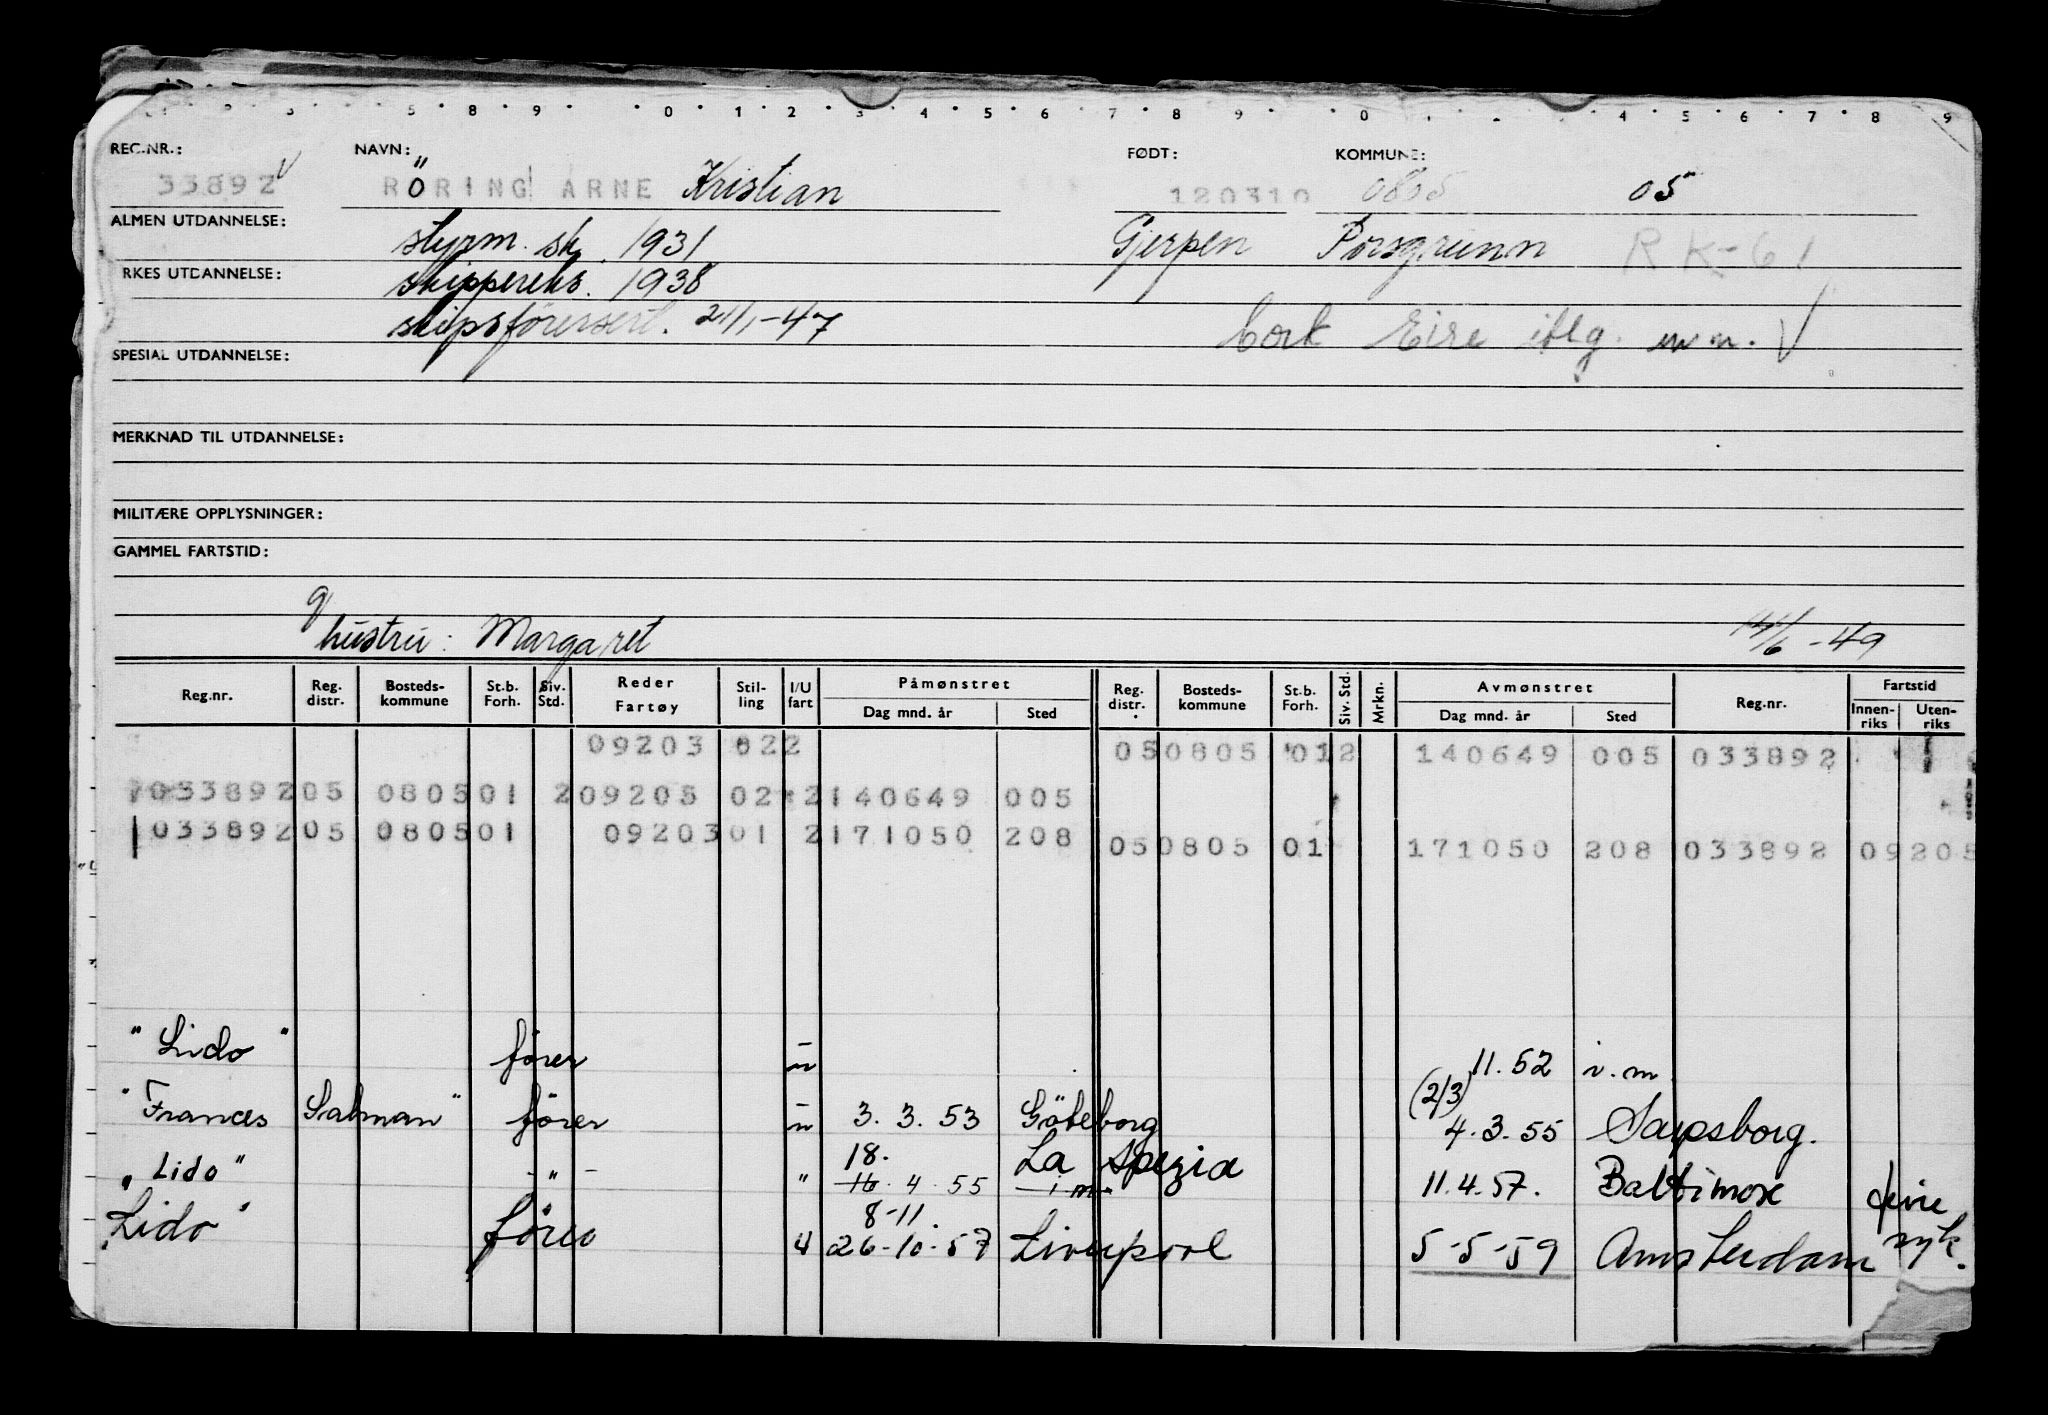 REG.NR.: NAVN: FØDT: KOMMUNE:
33892 RÖRING ARNE Kristian 120310 0805 05
ALMEN UTDANNELSE: styrm. sk. 1931 Gjerpen Porsgrunn RK-61
RKES UTDANNELSE: skippereks. 1938
skipsförersert. 21/1-47 Cork Eire iflg. mm.
SPESIAL UTDANNELSE:
MERKNAD TIL UTDANNELSE:
MILITÆRE OPPLYSNINGER:
GAMMEL FARTSTID:
g
hustru: Margaret 14/6-49
Reg.nr. Reg. distr. Bosteds-kommune St.b. Forh. Siv. Std. Reder Fartøy Stil-ling I/U fart Påmønstret Dag mnd. år Sted Reg. distr. Bosteds-kommune St.b. Forh. Siv. Std. Mrkn. Avmønstret Dag mnd. år Sted Reg.nr. Fartstid Innen-riks Uten-riks
09203 022 05 0805 01 2 140649 005 033892
033892 05 0805 01 2 09205 02 2 140649 005
033892 05 0805 01 09203 01 2 171050 208 05 0805 01 171050 208 033892 09205
"Lido" förer u 11.52 i.m
"Frances Salman" förer u 3.3.53 Göteborg (2/3) 4.3.55 Sarpsborg.
"Lido" - " - " 18. 16.4.55 La Spezia i m 11.4.57. Baltimore
Lido" förer u 8-11. 26-10-57 Liverpool 5-5-59 Amsterdam syk.